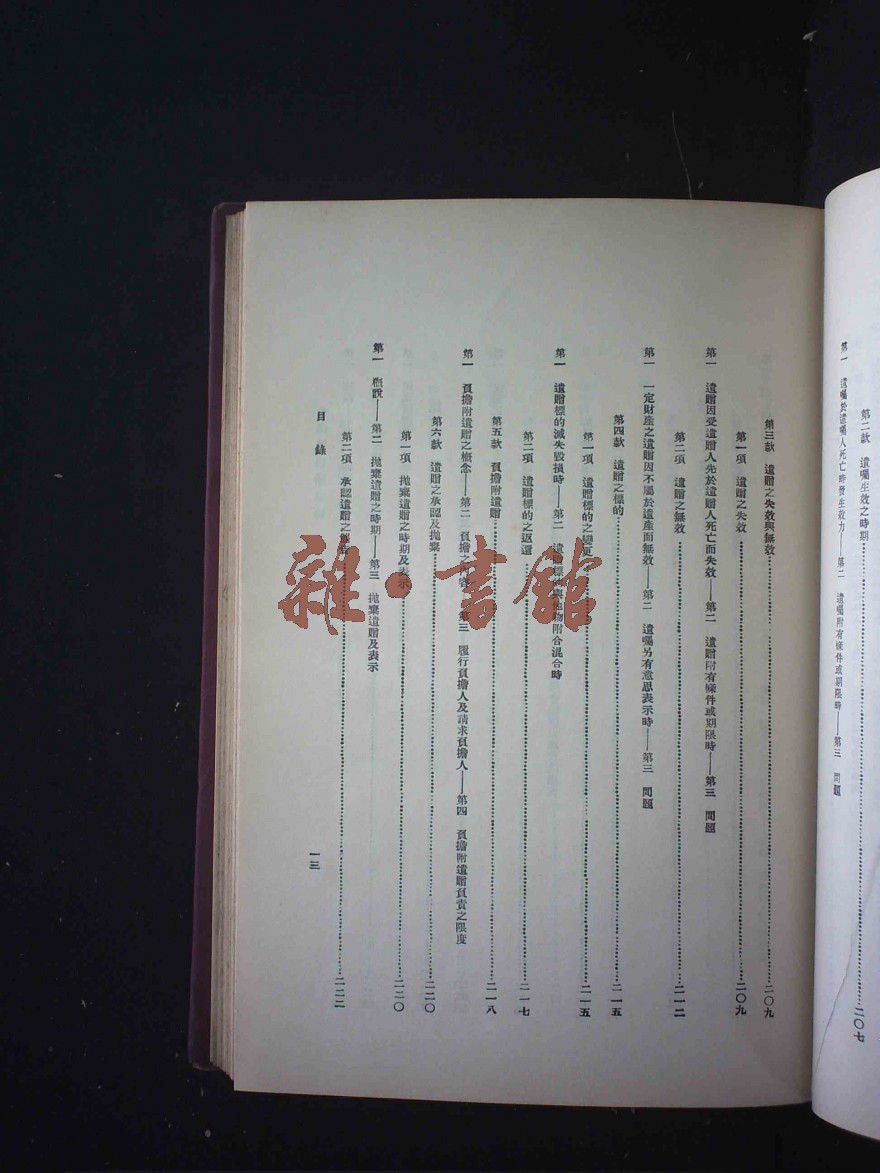 第二款　遺囑生效之時期……二〇七
第一　遺囑於遺囑人死亡時發生效力——第二　遺囑附有條件或期限時——第三　問題
第三款　遺贈之失效與無效……二〇九
第一項　遺贈之失效……二〇九
第一　遺贈因受遺贈人先於遺贈人死亡而失效——第二　遺贈附有條件或期限時——第三　問題
第二項　遺贈之無效……二一二
第一　一定財產之遺贈因不屬於遺產而無效——第二　遺囑另有意思表示時——第三　問題
第四款　遺贈之標的……二一五
第一項　遺贈標的之變更……二一五
第一　遺贈標的滅失毀損時——第二　遺贈標的與他物附合混合時
第二項　遺贈標的之返還……二一七
第五款　負擔附遺贈……二一八
第一　負擔附遺贈之概念——第二　負擔之內容——第三　履行負擔人及請求負擔人——第四　負擔附遺贈負責之限度
第六款　遺贈之承認及拋棄……二二〇
第一項　拋棄遺贈之時期及表示……二二〇
第一　概說——第二　拋棄遺贈之時期——第三　拋棄遺贈及表示
第二項　承認遺贈之……二二二
目錄
一三
雜·書館